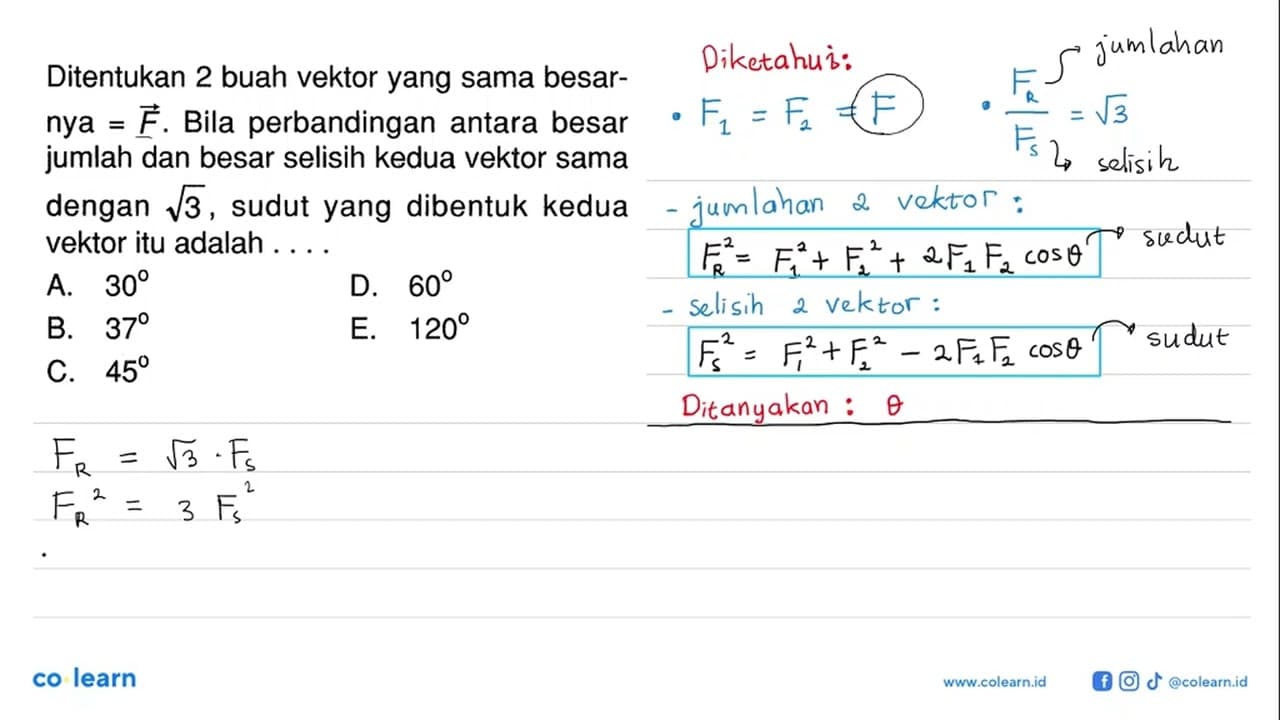 Ditentukan 2 buah vektor yang sama besar-
nya = F⃗. Bila perbandingan antara besar
jumlah dan besar selisih kedua vektor sama
dengan √3, sudut yang dibentuk kedua
vektor itu adalah . . . .
A. 30° D. 60°
B. 37° E. 120°
C. 45°
Diketahui:
• F₁ = F₂ = F
• F_R/F_s = √3
jumlahan
selisih
- jumlahan 2 vektor :
F_R² = F₁² + F₂² + 2F₁F₂ cosθ
sudut
- selisih 2 vektor :
F_s² = F₁² + F₂² - 2F₁F₂ cosθ
sudut
Ditanyakan : θ
F_R = √3 . F_s
F_R² = 3 F_s²
.
co learn
www.colearn.id
@colearn.id